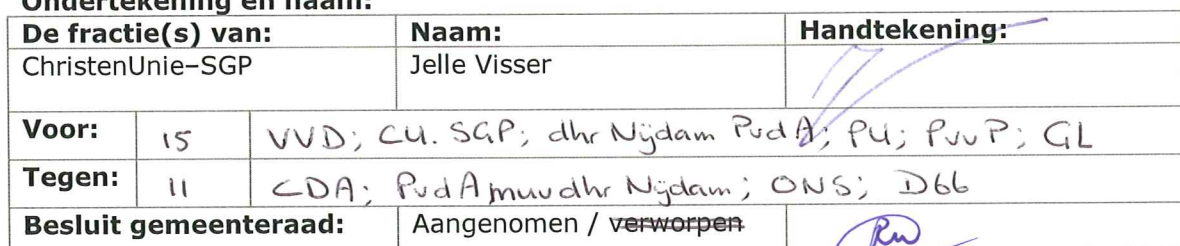 Ondertekening en naam:
De fractie(s) van: Naam: Handtekening:
ChristenUnie–SGP Jelle Visser
Voor: 15 VVD; CU.SGP; dhr Nijdam PvdA; PU; PvvP; GL
Tegen: 11 CDA; PvdA muv dhr Nijdam; ONS; D66
Besluit gemeenteraad: Aangenomen / verworpen